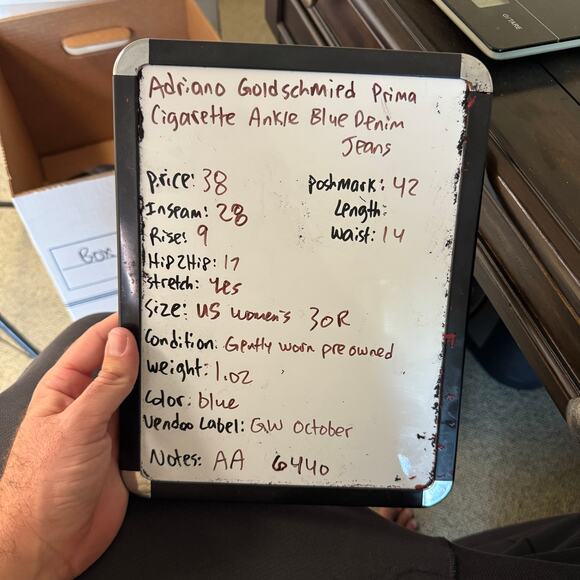 Adriano Goldschmied Prima
Cigarette Ankle Blue Denim
Jeans
price: 38
Poshmark: 42
Inseam: 28
Length:
Rise: 9
Waist: 14
Hip2Hip: 17
stretch: yes
Size: US women's 30R
Condition: Gently worn pre owned
weight: 1.02
Color: blue
Vendoo Label: GW October
Notes: AA 6440
Box
GITARE